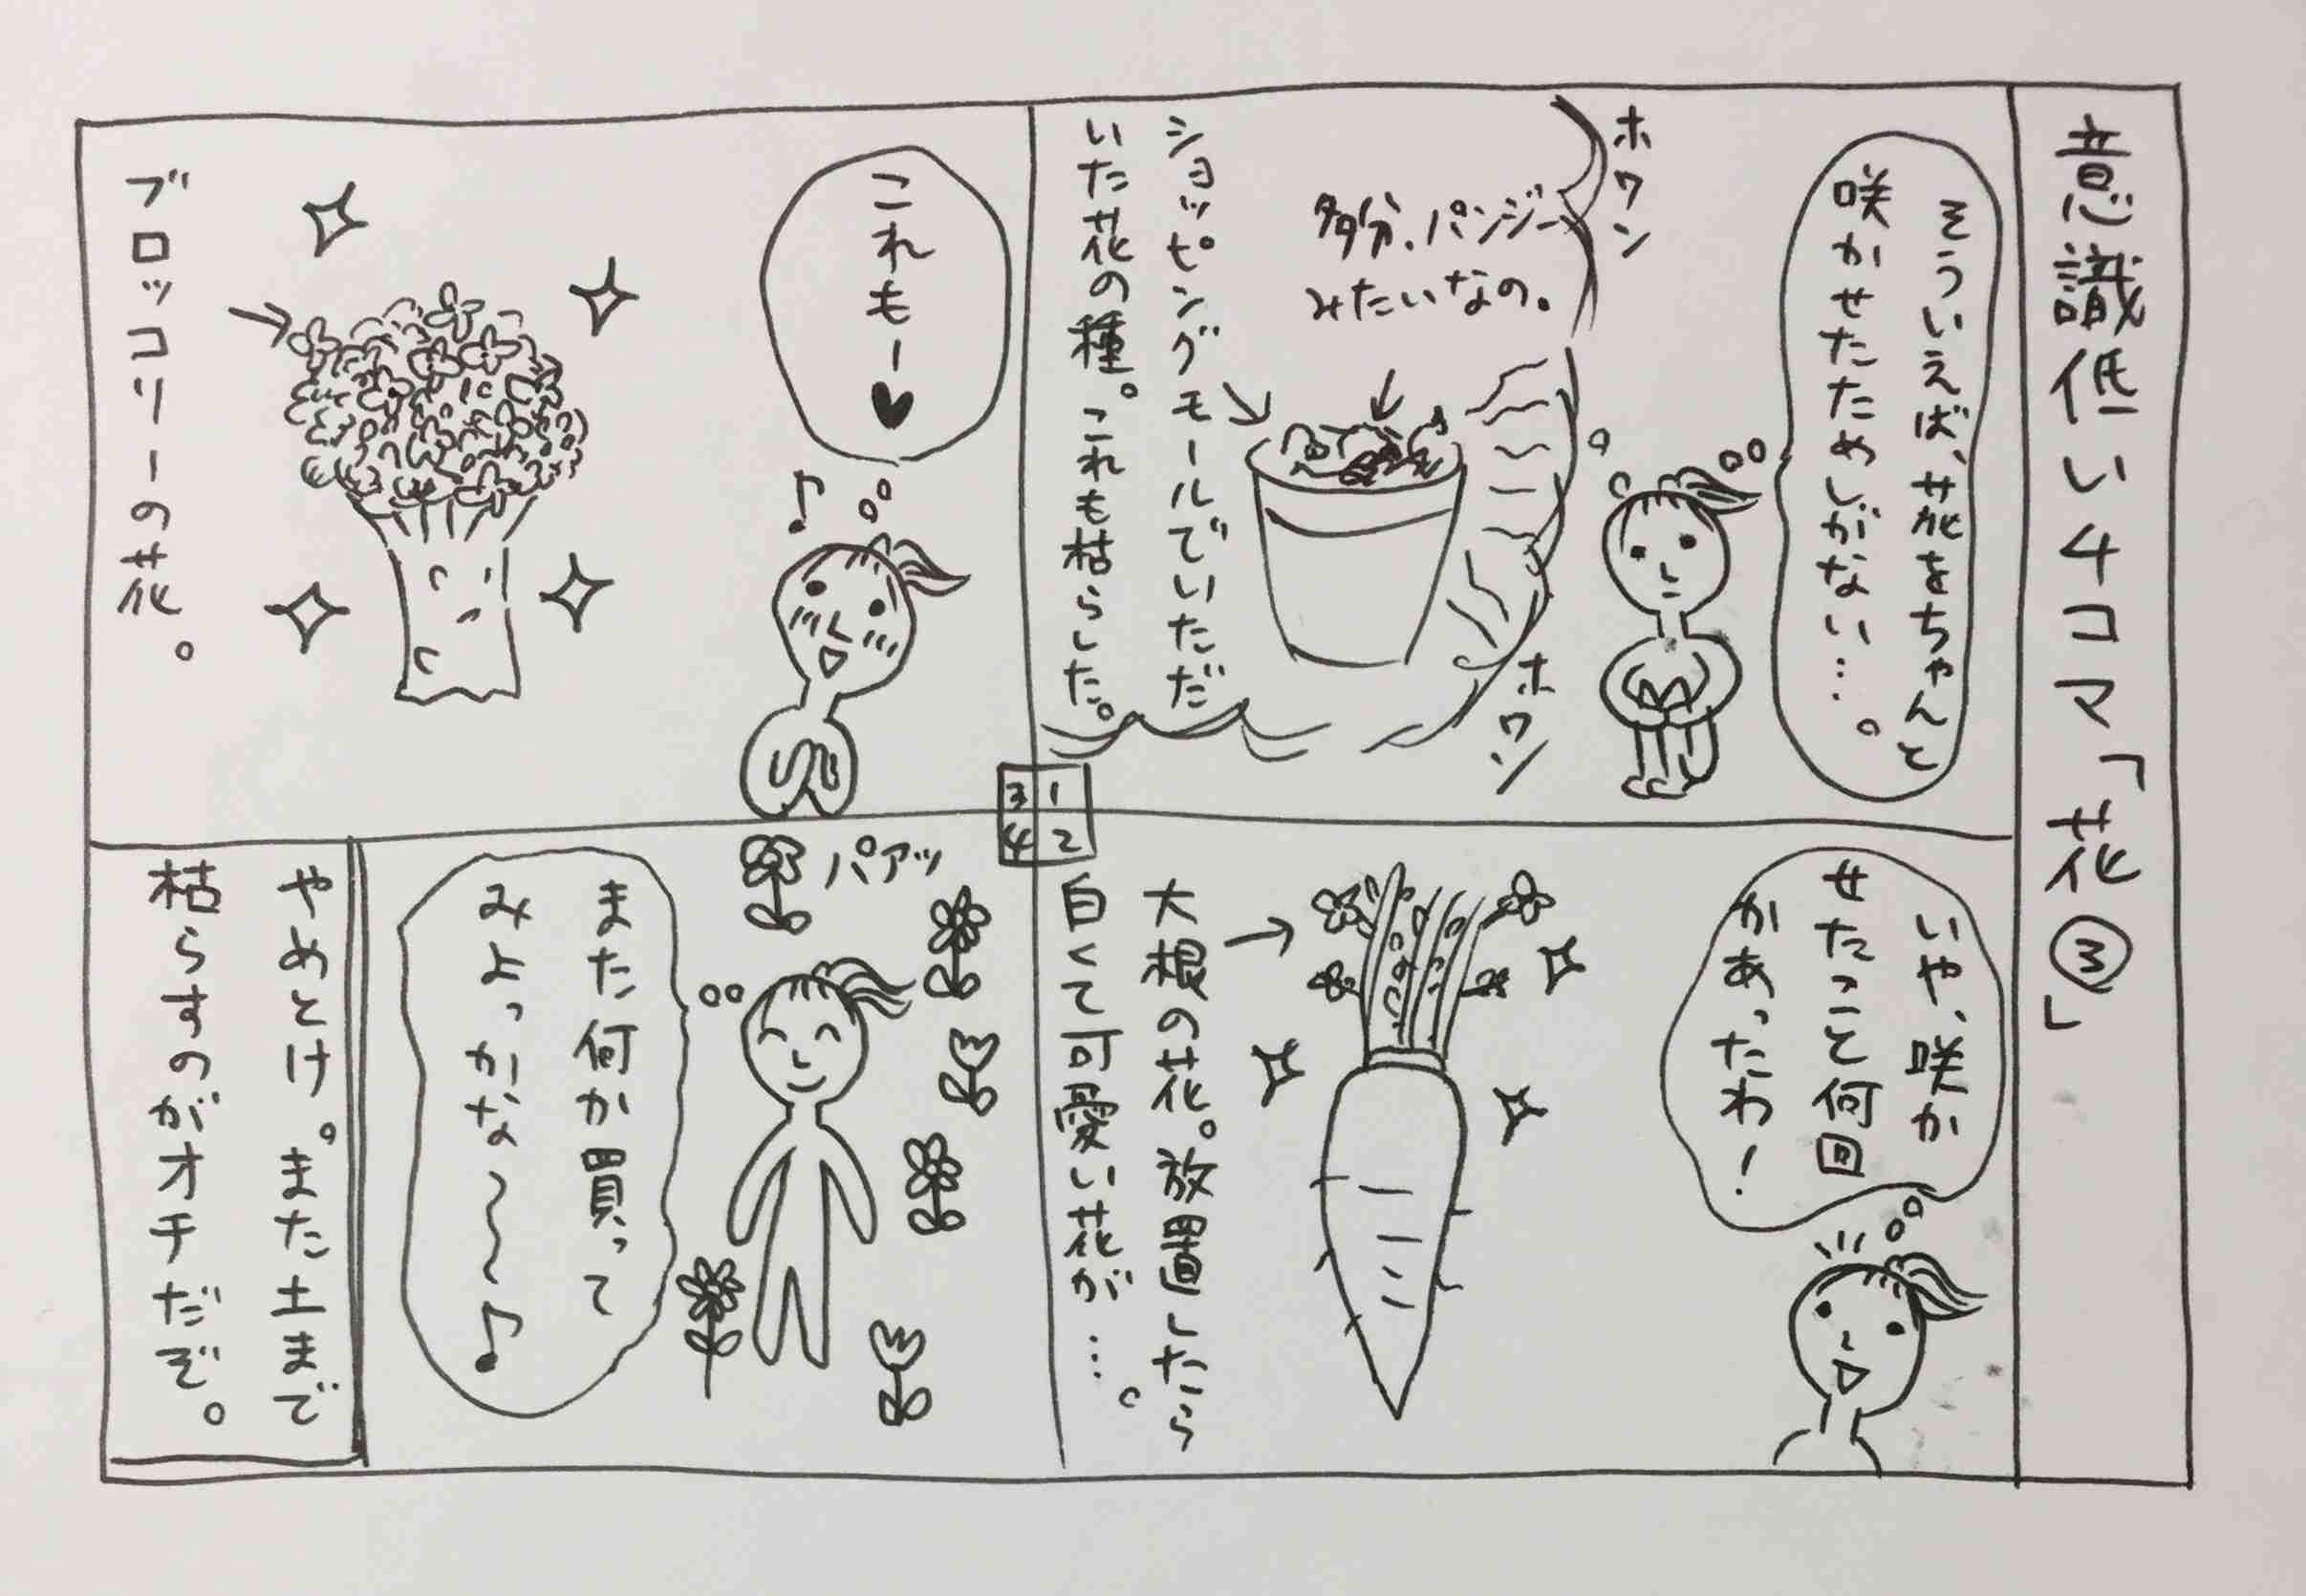 意識低い4コマ「花③」
そういえば、花をちゃんと
咲かせたためしがない…。
ホワン
多分、パンジー
みたいなの。
ホワン
ショッピングモールでいただ
いた花の種。これも枯らした。
1
2
3
4
いや、咲か
せたこと何回
かあったわ!
大根の花。放置したら
白くて可愛い花が…。
これもー♥
♪
ブロッコリーの花。
パアッ
また何か買って
みよっかな〜〜♪
やめとけ。また土まで
枯らすのがオチだぞ。